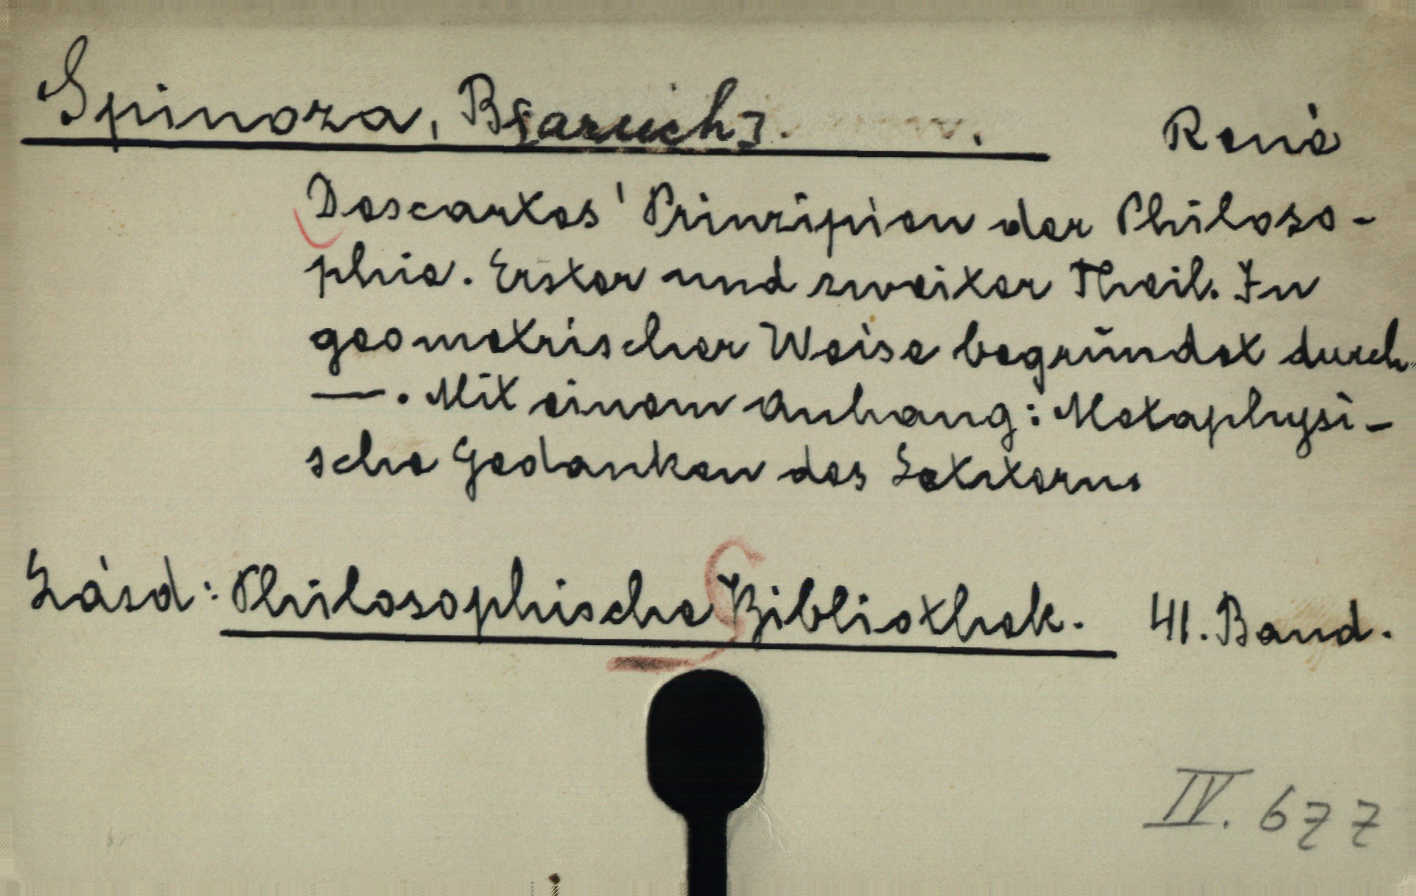 Spinoza, B[aruch]. René
Descartes' Prinzipien der Philoso-
phie. Erster und zweiter Theil. In
geometrischer Weise begründet durch
—. Mit einem Anhang: Metaphysi-
sche Gedanken des Letztern.
Lásd: Philosophische Bibliothek. 41. Band.
IV. 677